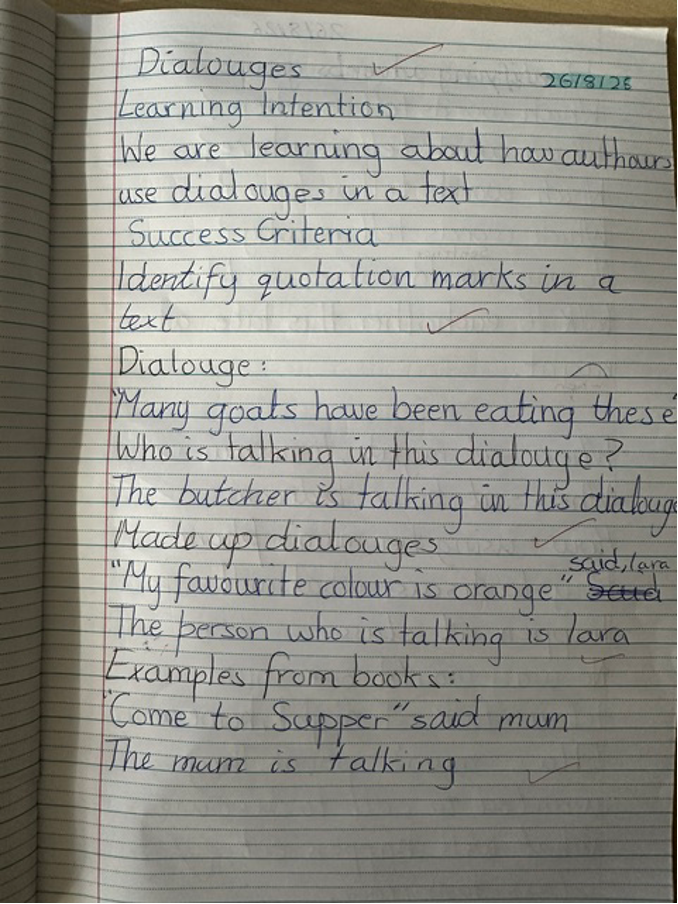 Dialouges
26/8/26
Learning Intention
We are learning about how authours
use dialouges in a text
Success Criteria
Identify quotation marks in a
text
Dialouge:
"Many goats have been eating these"
Who is talking in this dialouge?
The butcher is talking in this dialouge
Made up dialouges
said, lara
"My favourite colour is orange"
The person who is talking is lara
Examples from books:
"Come to Supper" said mum
The mum is talking